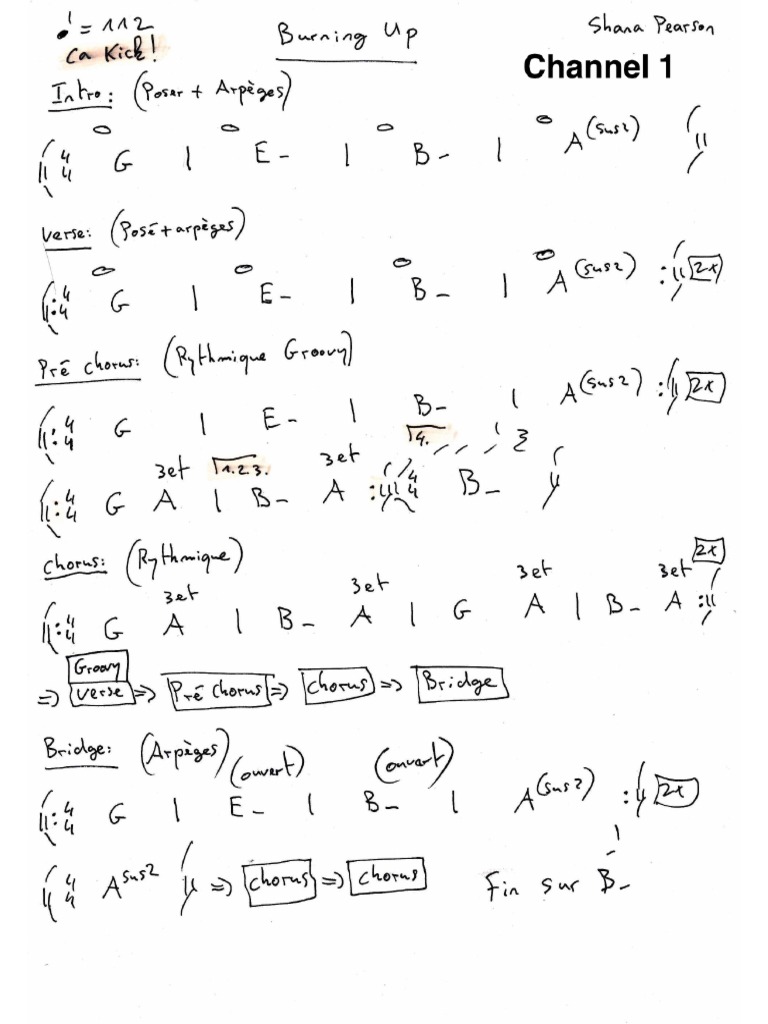 ♩ = 112 Burning Up Shana Pearson
Ca Kick!
Channel 1
Intro: (Poser + Arpèges)
4/4 G | E- | B- | A(sus2)
Verse: (Posé + arpèges)
4/4 G | E- | B- | A(sus2) :|| 2x
Pré chorus: (Rythmique Groovy)
4/4 G | E- | B- | A(sus2) :|| 2x
3et 1.2.3. 3et 4.
4/4 G A | B- A :|| 4/4 B-
Chorus: (Rythmique) 2x
3et 3et 3et 3et
||: 4/4 G A | B- A | G A | B- A :||
Groovy
=> Verse => Pré Chorus => Chorus => Bridge
Bridge: (Arpèges) (ouvert) (ouvert)
||: 4/4 G | E- | B- | A(sus2) :|| 2x
4/4 Asus2 => Chorus => Chorus Fin sur B-